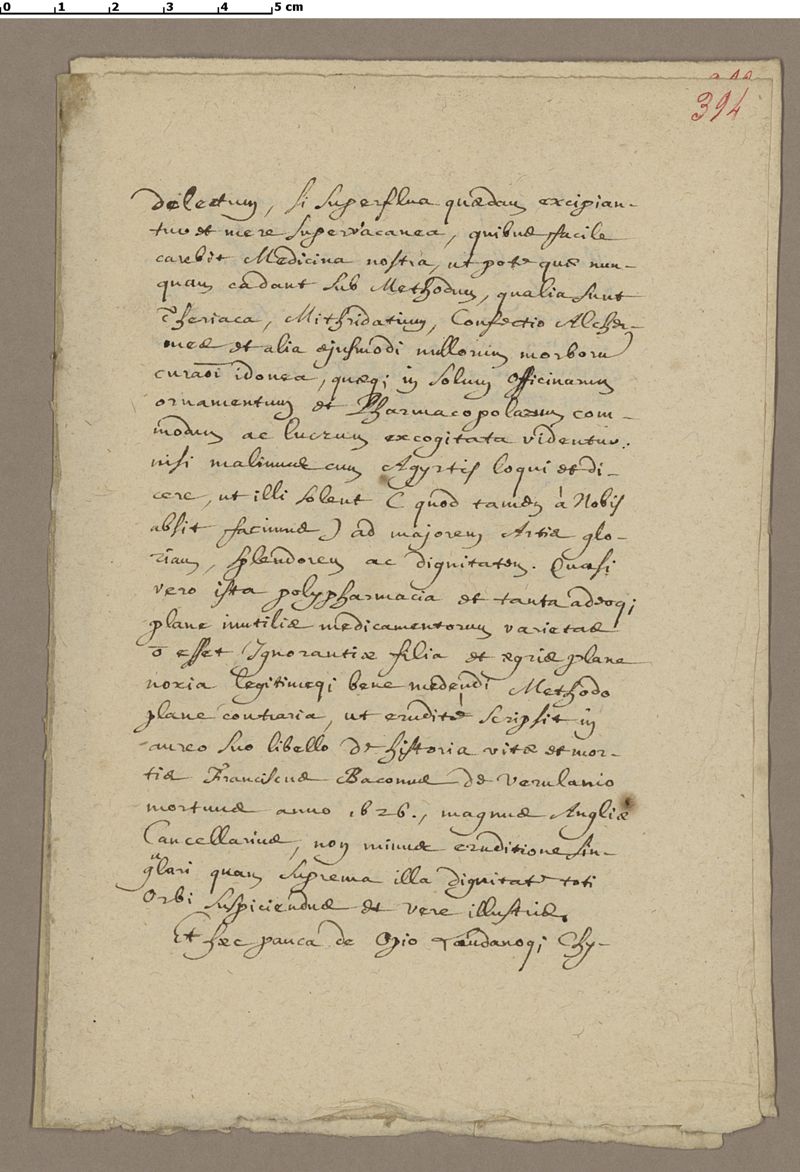 0 1 2 3 4 5 cm
394
delectum, si superflua quædam excipian-
tur et mere supervacanea, quibus facile
carebit Medicina nostra, ut pote quæ nun-
quam cadant sub Methodum, qualia sunt
Theriaca, Mithridatium, Confectio Alcher-
mes et alia ejusmodi nullorum morborū
curaōi idonea, quæq; in solum Officinarum
ornamentum et Pharmacopolarum com-
modum ac lucrum excogitata videntur:
nisi malimus cum Agyrtis loqui et di-
cere, ut illi solent (quod tamen à Nobis
absit facimus) ad majorem Artis glo-
riam, splendorem ac dignitatem. Quasi
vero ista polypharmacia et tanta adeoq;
plane inutilis medicamentorum varietas
ō esset Ignorantiæ filia et ægris plane
noxia legitimeq; bene medendi Methodo
plane contraria, ut erudite scripsit in
aureo suo libello de historia vitæ et mor-
tis Franciscus Baconus de Verulamio
mortuus anno 1626., magnus Angliæ
Cancellarius, non minus eruditione sin-
gulari quam suprema illa dignitate toti
Orbi suspiciendus et vere illustris.
Et hæc pauca de Opio Laudanoq; Chy-